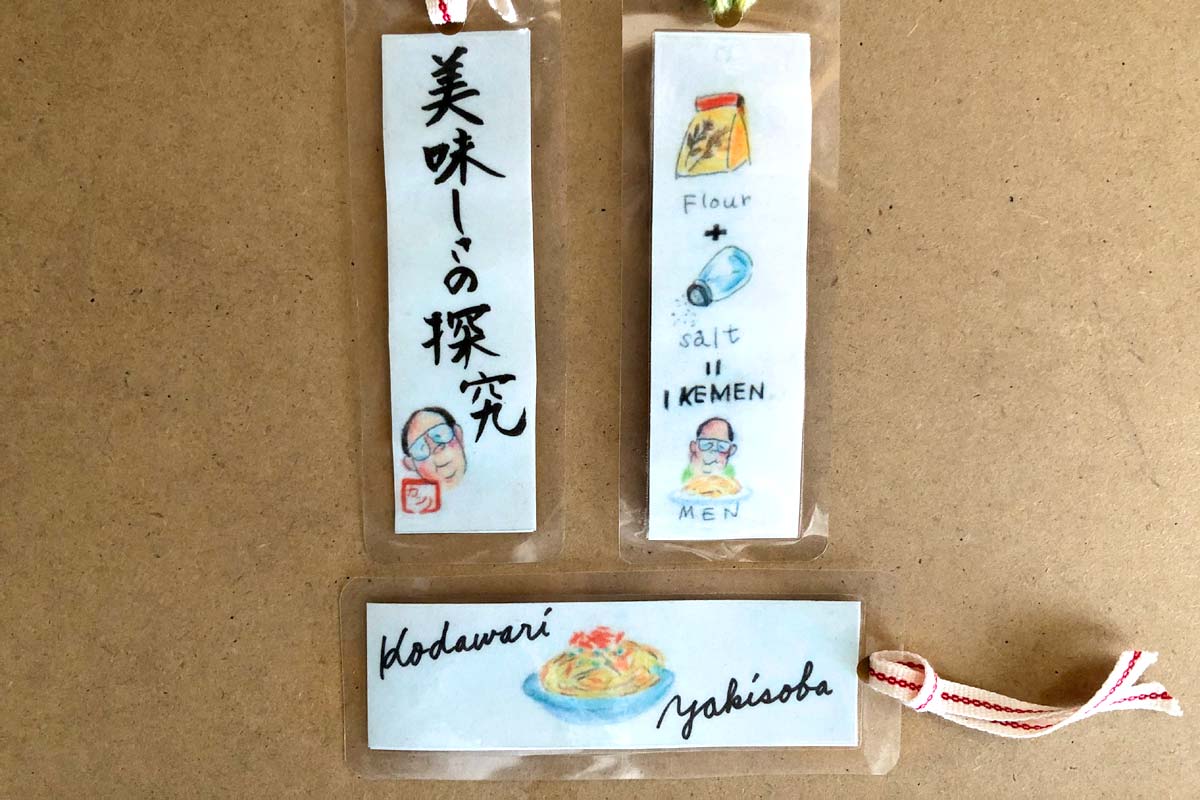 美味しさの探究
カンノ
Flour
+
salt
=
IKEMEN
MEN
Kodawari
yakisoba